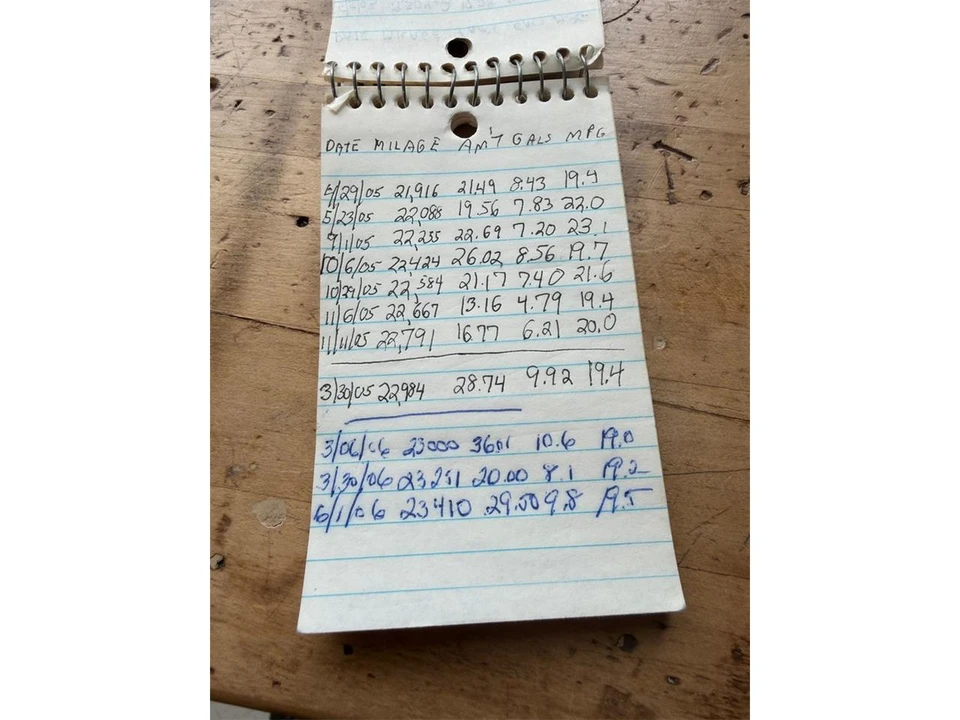 DATE MILAGE AM'T GALS MPG
4/29/05 21,916 21.49 8.43 19.4
5/23/05 22,088 19.56 7.83 22.0
9/1/05 22,255 22.69 7.20 23.1
10/6/05 22,424 26.02 8.56 19.7
10/29/05 22,584 21.17 7.40 21.6
11/6/05 22,667 13.16 4.79 19.4
11/11/05 22,791 16.77 6.21 20.0
3/30/05 22,984 28.74 9.92 19.4
3/06/06 23000 36.01 10.6 19.0
3/30/06 23251 20.00 8.1 19.2
6/1/06 23410 29.50 9.8 19.5